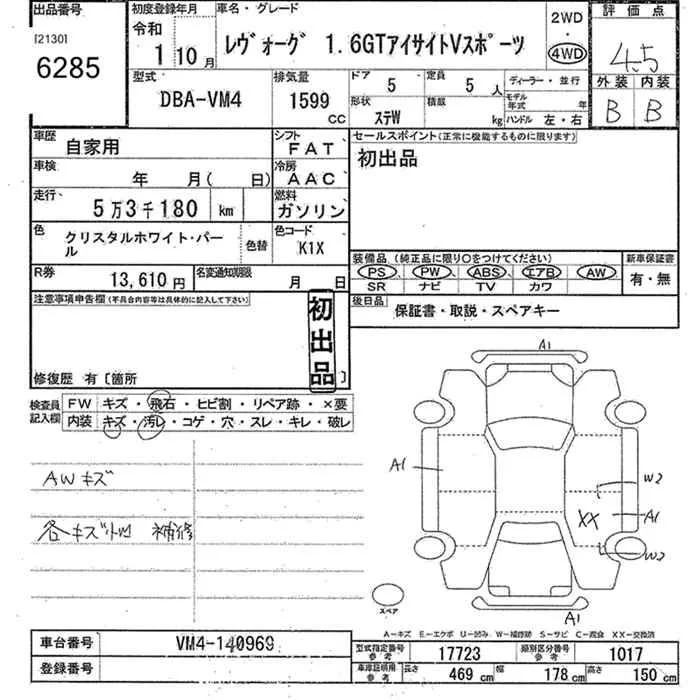 出品番号 初度登録年月 車名・グレード 2WD・4WD 評価点
[2130] 6285 令和 1 10月 レヴォーグ 1.6GTアイサイトVスポーツ 4.5
外装 内装
B B
型式 DBA-VM4 排気量 1599 CC
ドア 5 定員 5 人 ディーラー・並行
形状 ステW 積載 kg モデル年式 年 ハンドル 左・右
車歴 自家用 シフト FAT
車検 年 月( 日) 冷房 AAC
走行 5万3千180 km 燃料 ガソリン
色 クリスタルホワイト・パール 色替 色コード K1X
R券 13,610円 名変通知期限 月 日
セールスポイント(正常に機能するものに限ります)
初出品
装備品(純正品に限り○をつけてください) 新車保証書
PS PW ABS エアB AW 有・無
SR ナビ TV カワ
後日品 保証書・取説・スペアキー
注意事項申告欄(不具合内容等は具体的に記入して下さい)
初出品
修復歴 有〔箇所 〕
検査員記入欄
FW キズ・飛石・ヒビ割・リペア跡・×要
内装 キズ・汚レ・コゲ・穴・スレ・キレ・破レ
AWキズ
各キズ凹 補修
A1
A1
W2
XX A1
W2
A1
スペア
A-キズ E-エクボ U-凹み W-補修跡 S-サビ C-腐食 XX-交換済
車台番号 VM4-140969
登録番号
型式指定番号 参考 17723 類別区分番号 参考 1017
車庫証明用 参考 長さ 469 cm 幅 178 cm 高さ 150 cm